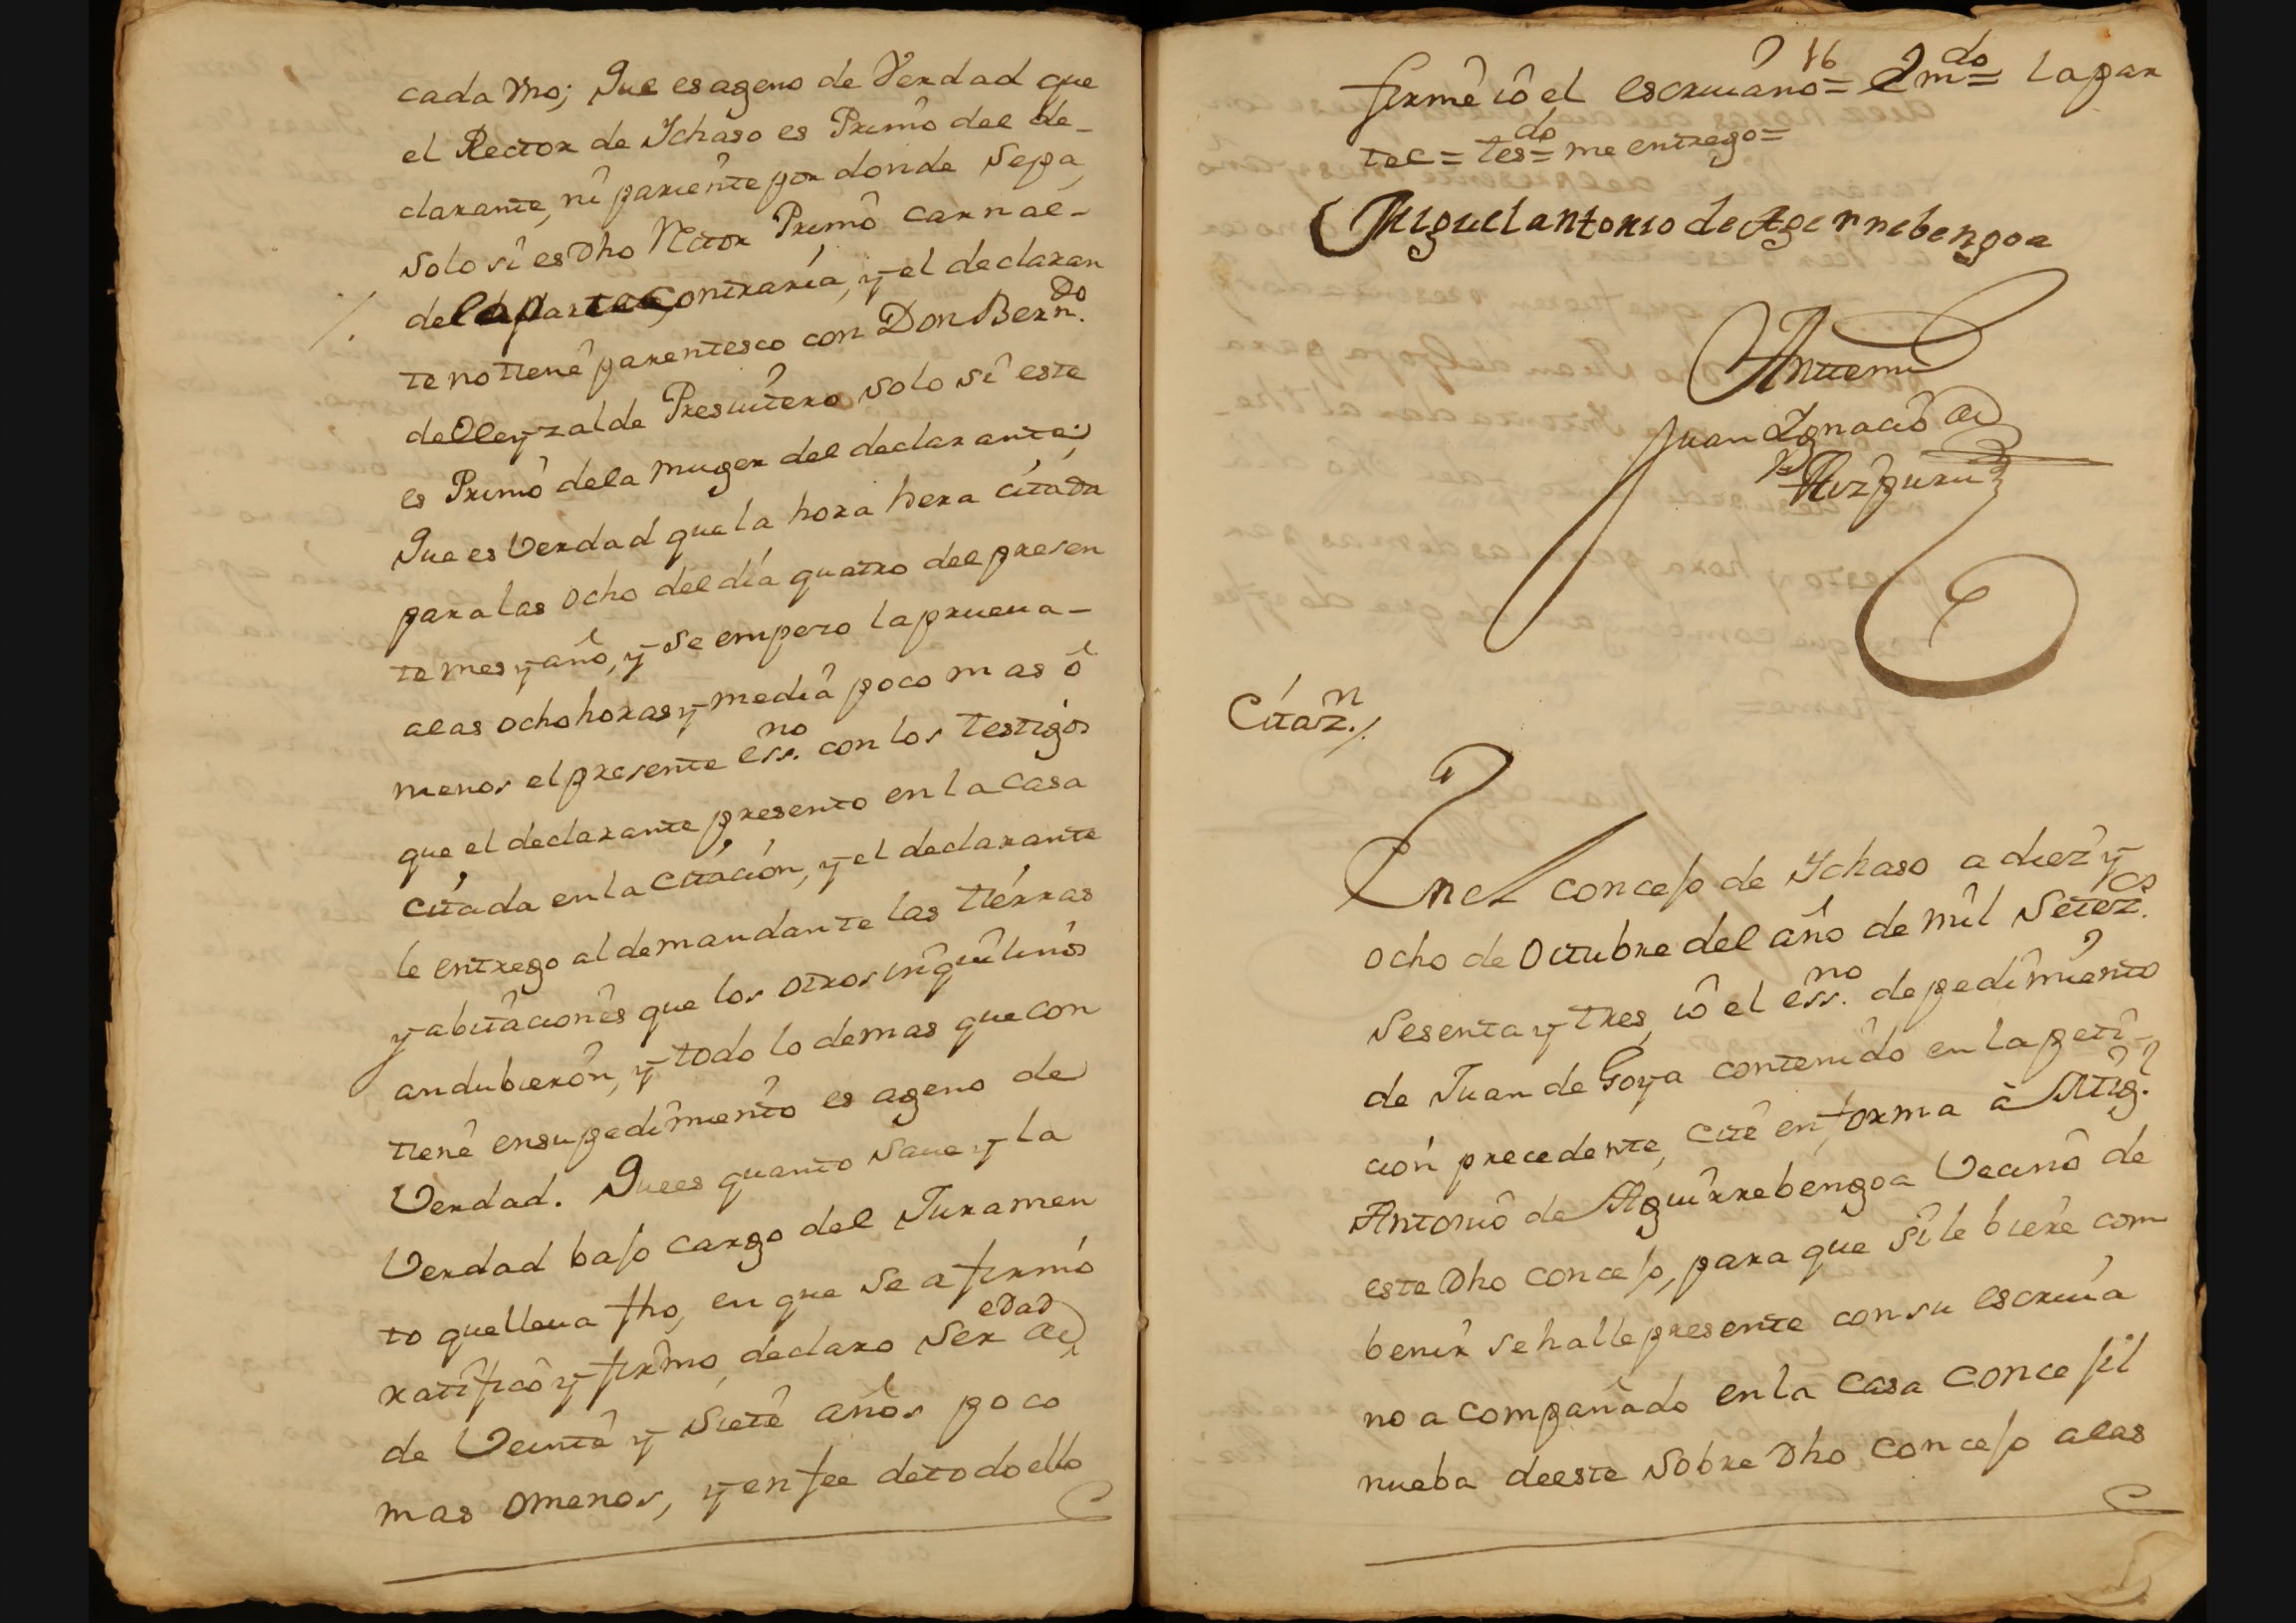 cada vno; Que es ageno de Verdad que
el Rector de Ychaso es Primo del de-
clarante, ni pariente por donde Sepa,
solo si es Dho Rector Primo carnal-
de la parte Contraria, y el declaran
te no tiene parentesco con Don Bern.do
de Oleyzalde Presuitero solo si este
es Primo dela muger del declarante;
Que es Verdad que la hora hera citada
para las ocho del dia quatro del presen
te mes y año, y se empezo la prueua-
alas ocho horas y media poco mas ó
menos el presente ess.no con los testigos
que el declarante presento en la casa
citada en la citacion, y el declarante
le entrego al demandante las tierras
y abitaciones que los otros inquilinos
andubieron, y todo lo demas que con
tiene en su pedimiento es ageno de
Verdad. Que es quanto saue y la
Verdad bajo cargo del Juramen
to que lleua fho, en que se afirmó
edad
ratificó y firmo, declaro ser de
de Veinte y Siete años poco
mas o menos, y en fee de todo ello
16
firmé ió el escriuano= Em.do= la par
tec= tes.do= me entrego=
Miguel antonio de Agirrebengoa
Antemi
Juan Ygnacio de
Aizpuru
Citaz.n
En el concejo de Ychaso a diez y
ocho de Octubre del año de mil Setez.os
Sesenta y tres, ió el ess.no de pedimiento
de Juan de Goya contenido en la peti-
ción precedente, cité en forma à Mig.l
Antonio de Aguirrebengoa Vecino de
este Dho concejo, para que si le biere com
benir se halle presente con su escriua
no acompañado en la casa concejil
nueba de este sobre Dho concejo alas